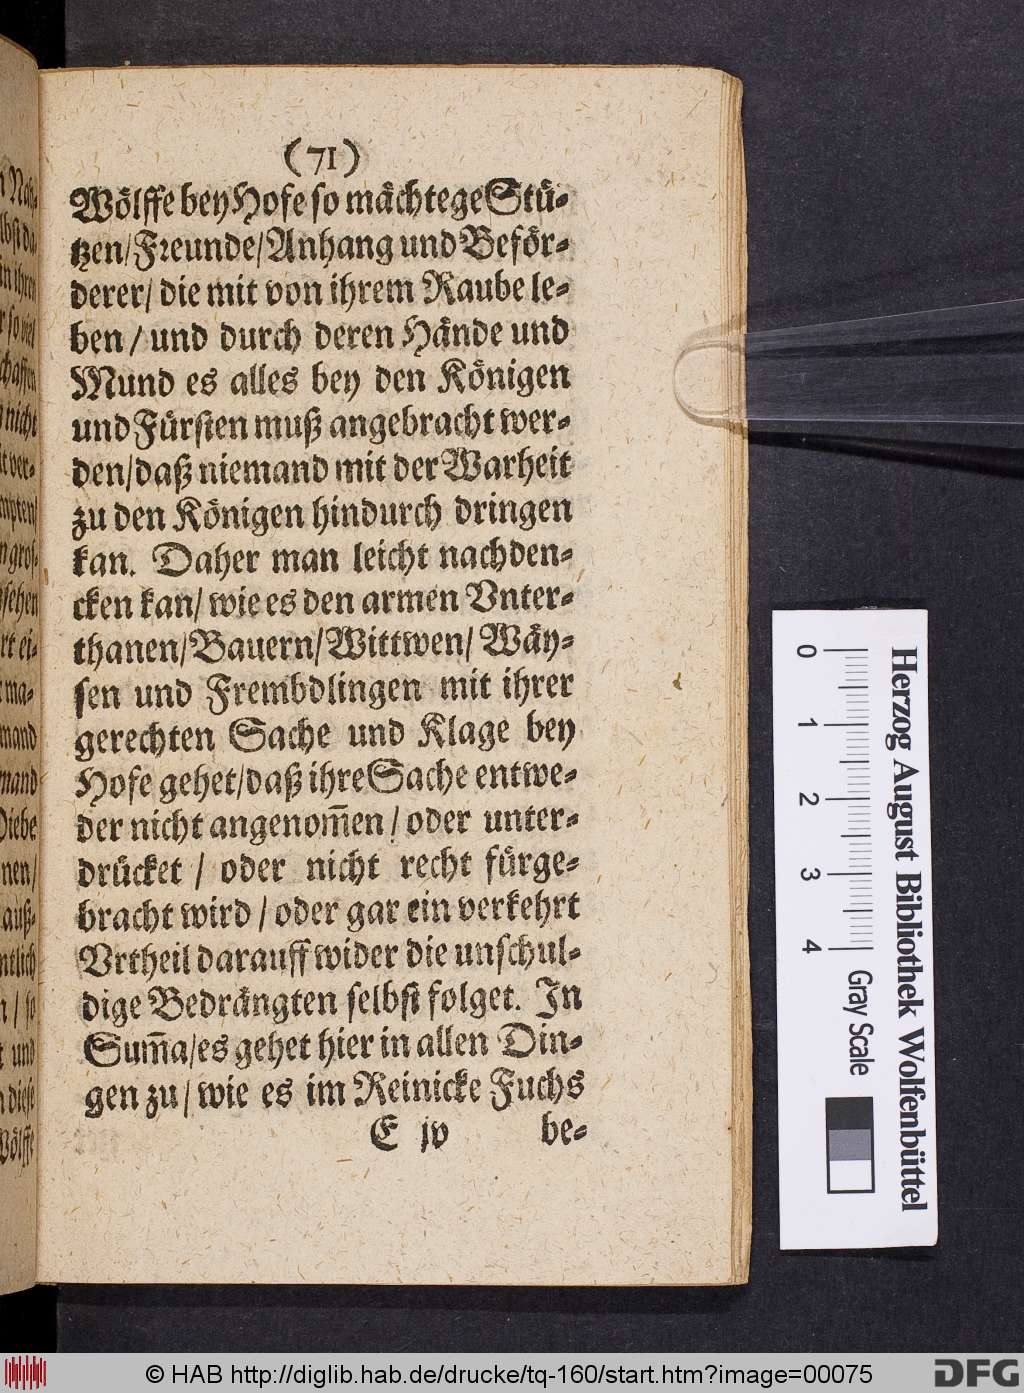 (71)
Wölffe bey Hofe so mächtege Stü-
tzen/Freunde/Anhang und Beför-
derer/ die mit von ihrem Raube le-
ben / und durch deren Hände und
Mund es alles bey den Königen
und Fürsten muß angebracht wer-
den/daß niemand mit der Warheit
zu den Königen hindurch dringen
kan. Daher man leicht nachden-
cken kan/ wie es den armen Vnter-
thanen/Bauern/Wittwen/ Wäy-
sen und Frembdlingen mit ihrer
gerechten Sache und Klage bey
Hofe gehet/daß ihre Sache entwe-
der nicht angenom̃en / oder unter-
drücket / oder nicht recht fürge-
bracht wird / oder gar ein verkehrt
Vrtheil darauff wider die unschul-
dige Bedrängten selbst folget. In
Sum̃a/es gehet hier in allen Din-
gen zu / wie es im Reinicke Fuchs
E jv be-
0 1 2 3 4
Herzog August Bibliothek Wolfenbüttel
Gray Scale
© HAB http://diglib.hab.de/drucke/tq-160/start.htm?image=00075
DFG